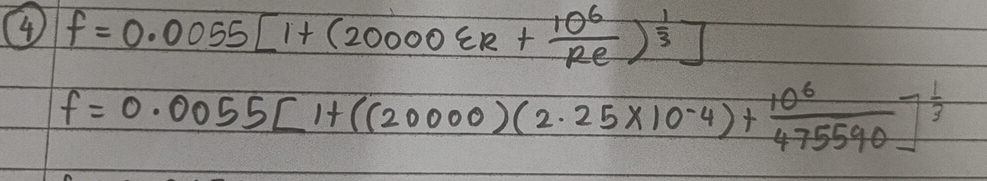 ④ f = 0.0055 [ 1 + (20000 ƐR + 10^6/Re)^1/3 ]
f = 0.0055 [ 1 + ((20000)(2.25 × 10^-4) + 10^6/475590 ]^1/3